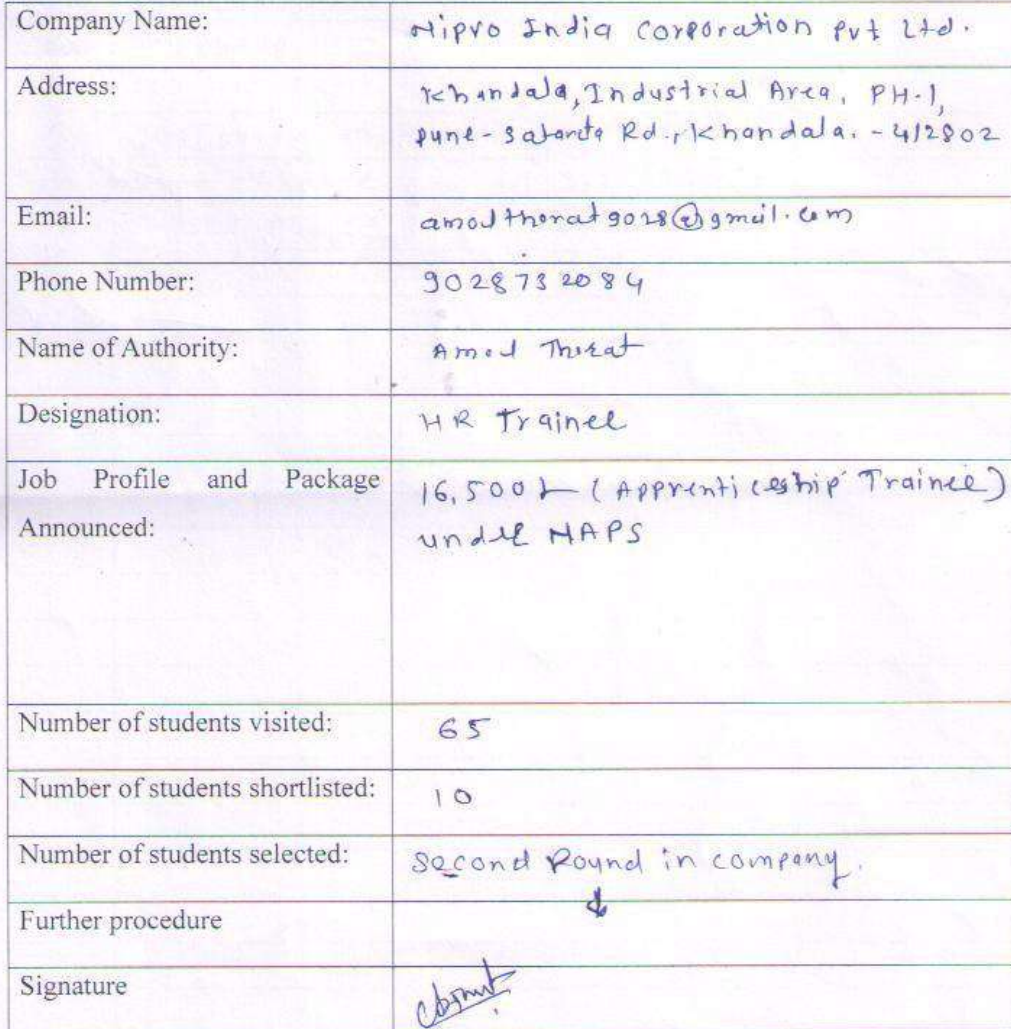 Company Name: Nipro India Corporation Pvt Ltd.
Address: Khandala, Industrial Area, PH-1,
Pune-Satara Rd., Khandala. - 412802
Email: amodthorat9028@gmail.com
Phone Number: 9028732084
Name of Authority: Amod Thorat
Designation: HR Trainee
Job Profile and Package 16,500/- (Apprenticeship Trainee)
Announced: under NAPS
Number of students visited: 65
Number of students shortlisted: 10
Number of students selected: Second Round in company.
Further procedure ↓
Signature